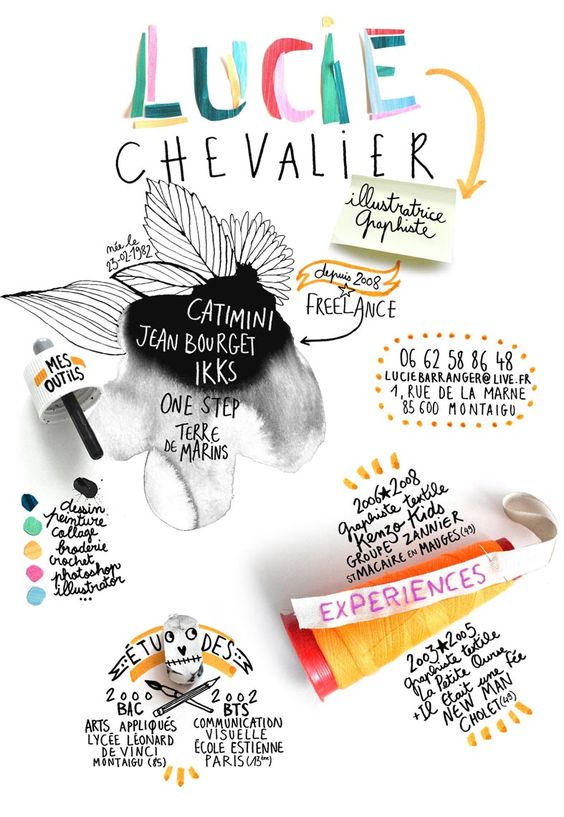 LUCIE
CHEVALIER
illustratrice
graphiste
née le
23-02-1982
depuis 2008
FREELANCE
CATIMINI
JEAN BOURGET
IKKS
ONE STEP
TERRE
DE MARINS
MES
OUTILS
06 62 58 86 48
LUCIEBARRANGER@LIVE.FR
1, RUE DE LA MARNE
85 600 MONTAIGU
dessin
peinture
collage
broderie
crochet
photoshop
illustrator
2006★2008
graphiste textile
Kenzo Kids
GROUPE ZANNIER
ST MACAIRE EN MAUGES (49)
EXPERIENCES
2003★2005
graphiste textile
La Petite Ourse
+ Il était une fée
NEW MAN
CHOLET (49)
ÉTUDES
2000
BAC
ARTS APPLIQUÉS
LYCÉE LÉONARD
DE VINCI
MONTAIGU (85)
2002
BTS
COMMUNICATION
VISUELLE
ÉCOLE ESTIENNE
PARIS (13ème)